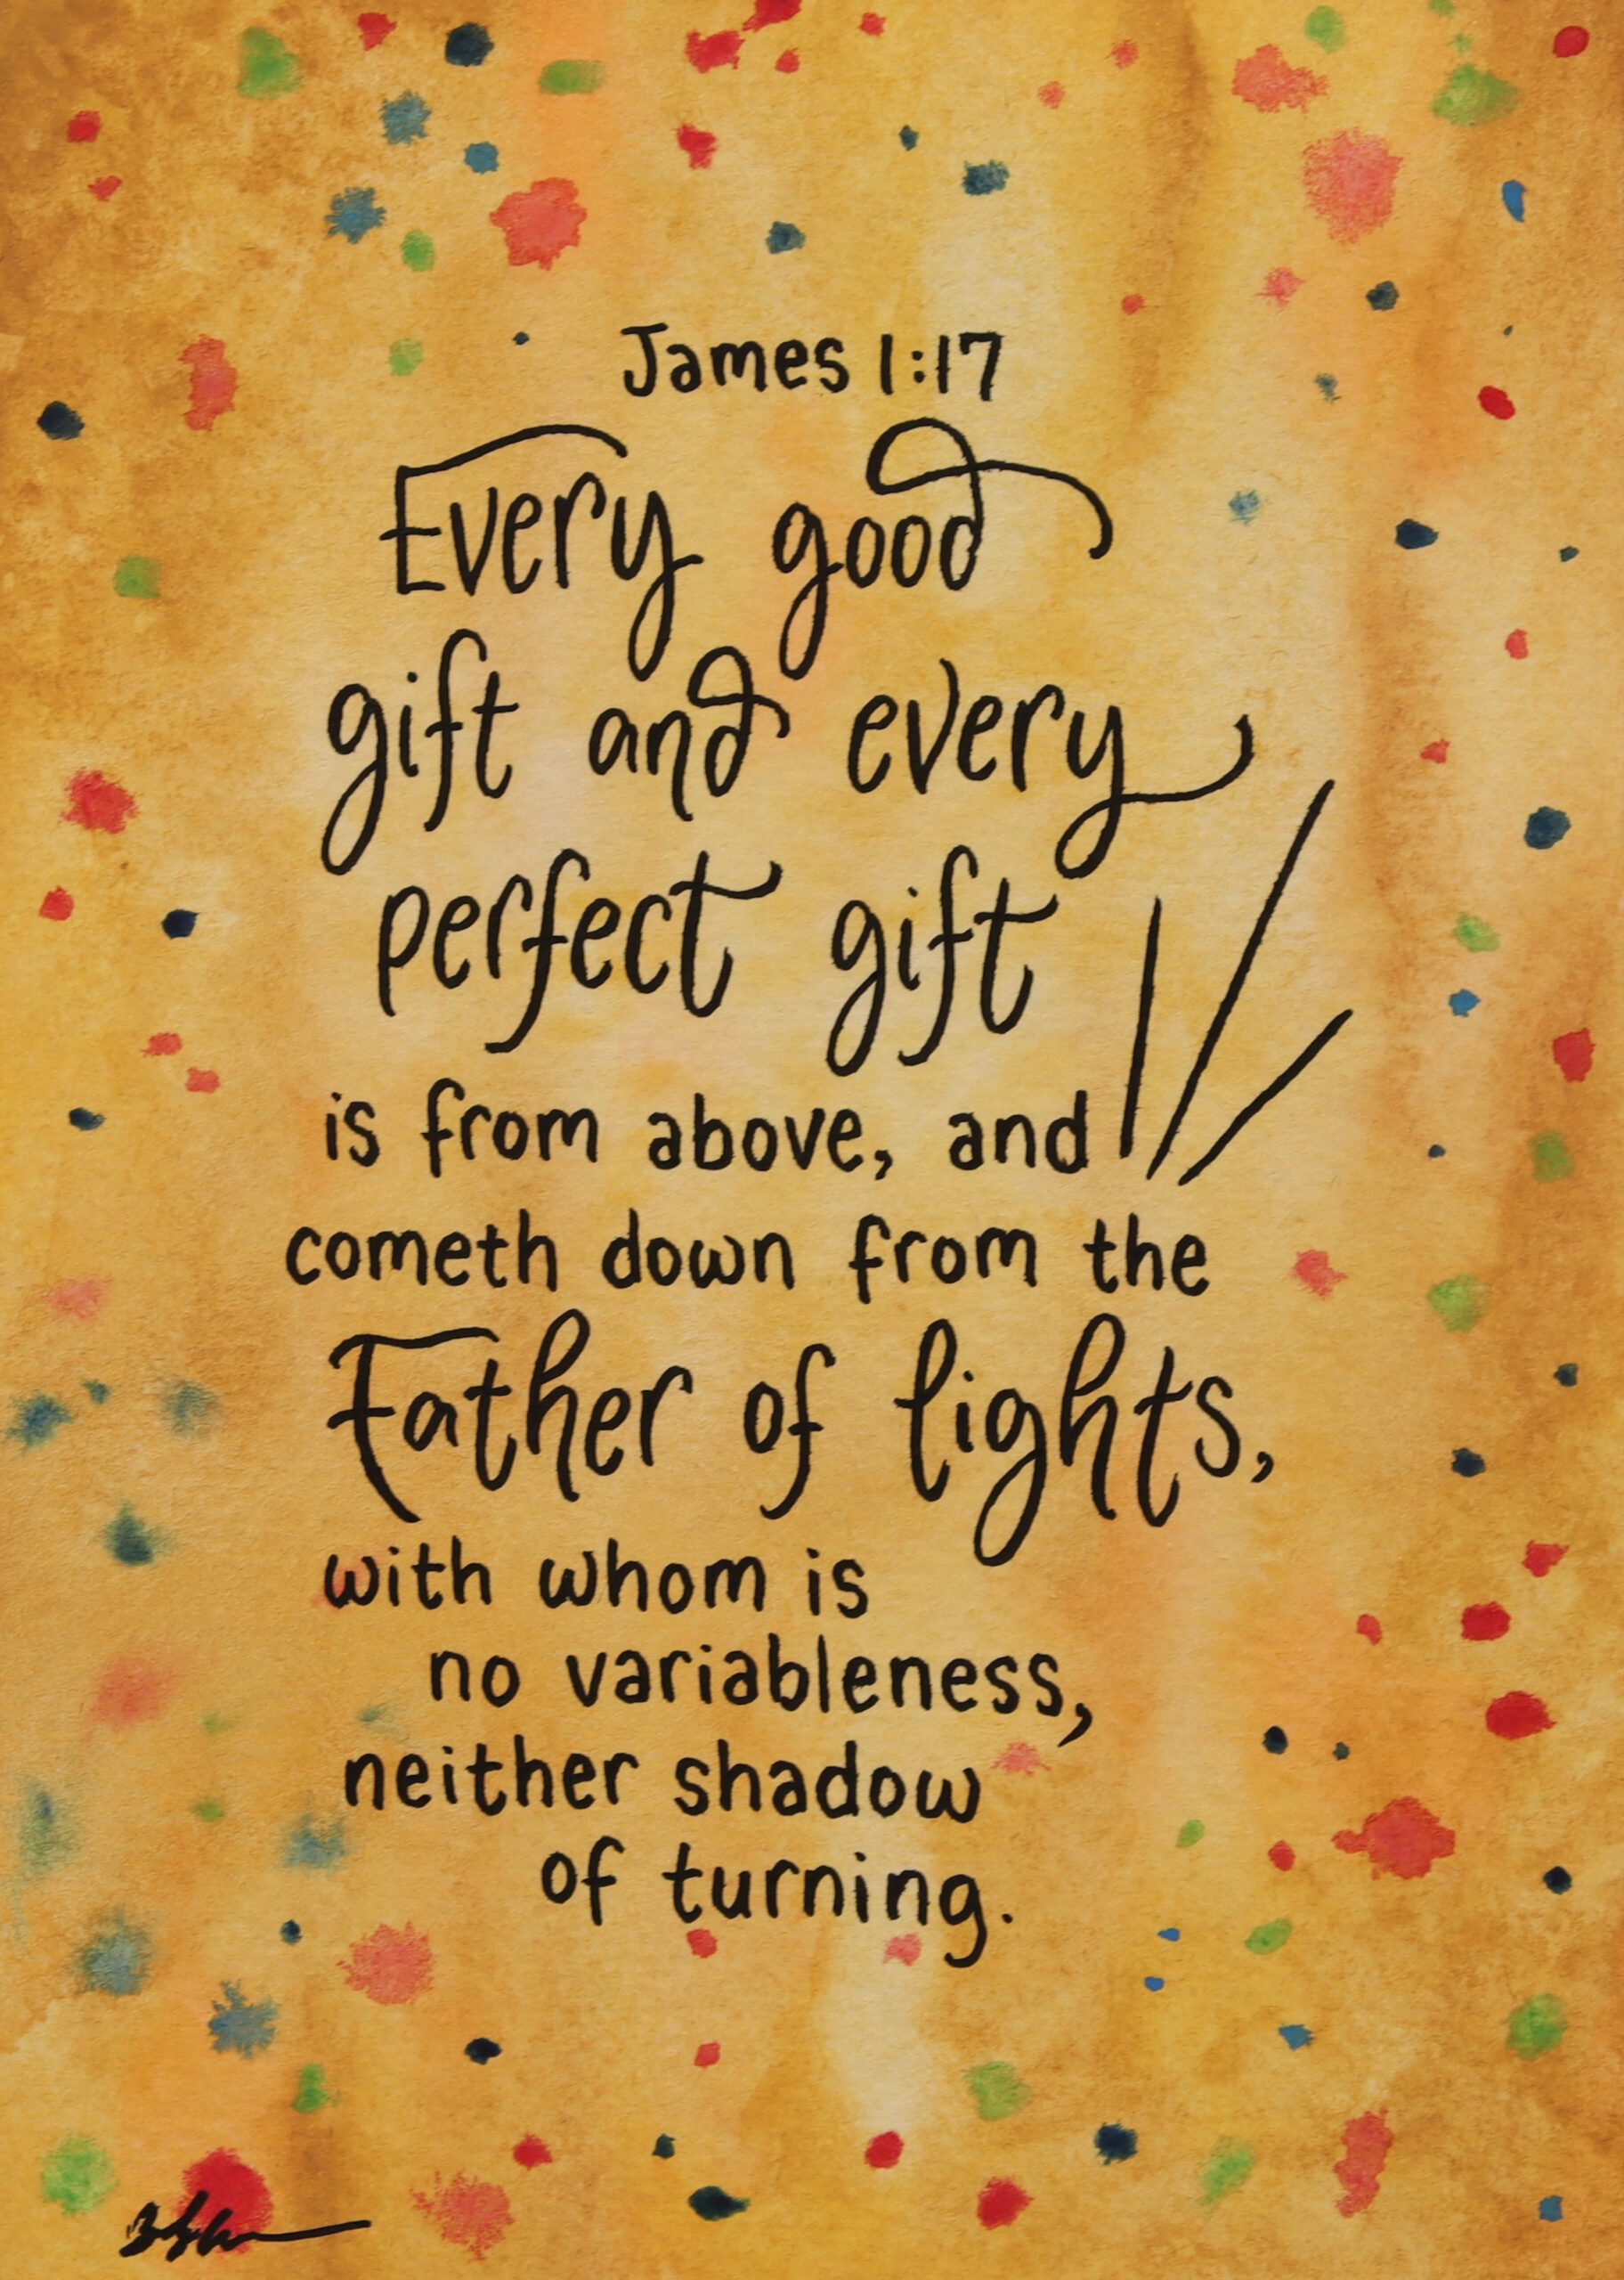 James 1:17
Every good
gift and every
perfect gift
is from above, and
cometh down from the
Father of lights,
with whom is
no variableness,
neither shadow
of turning.